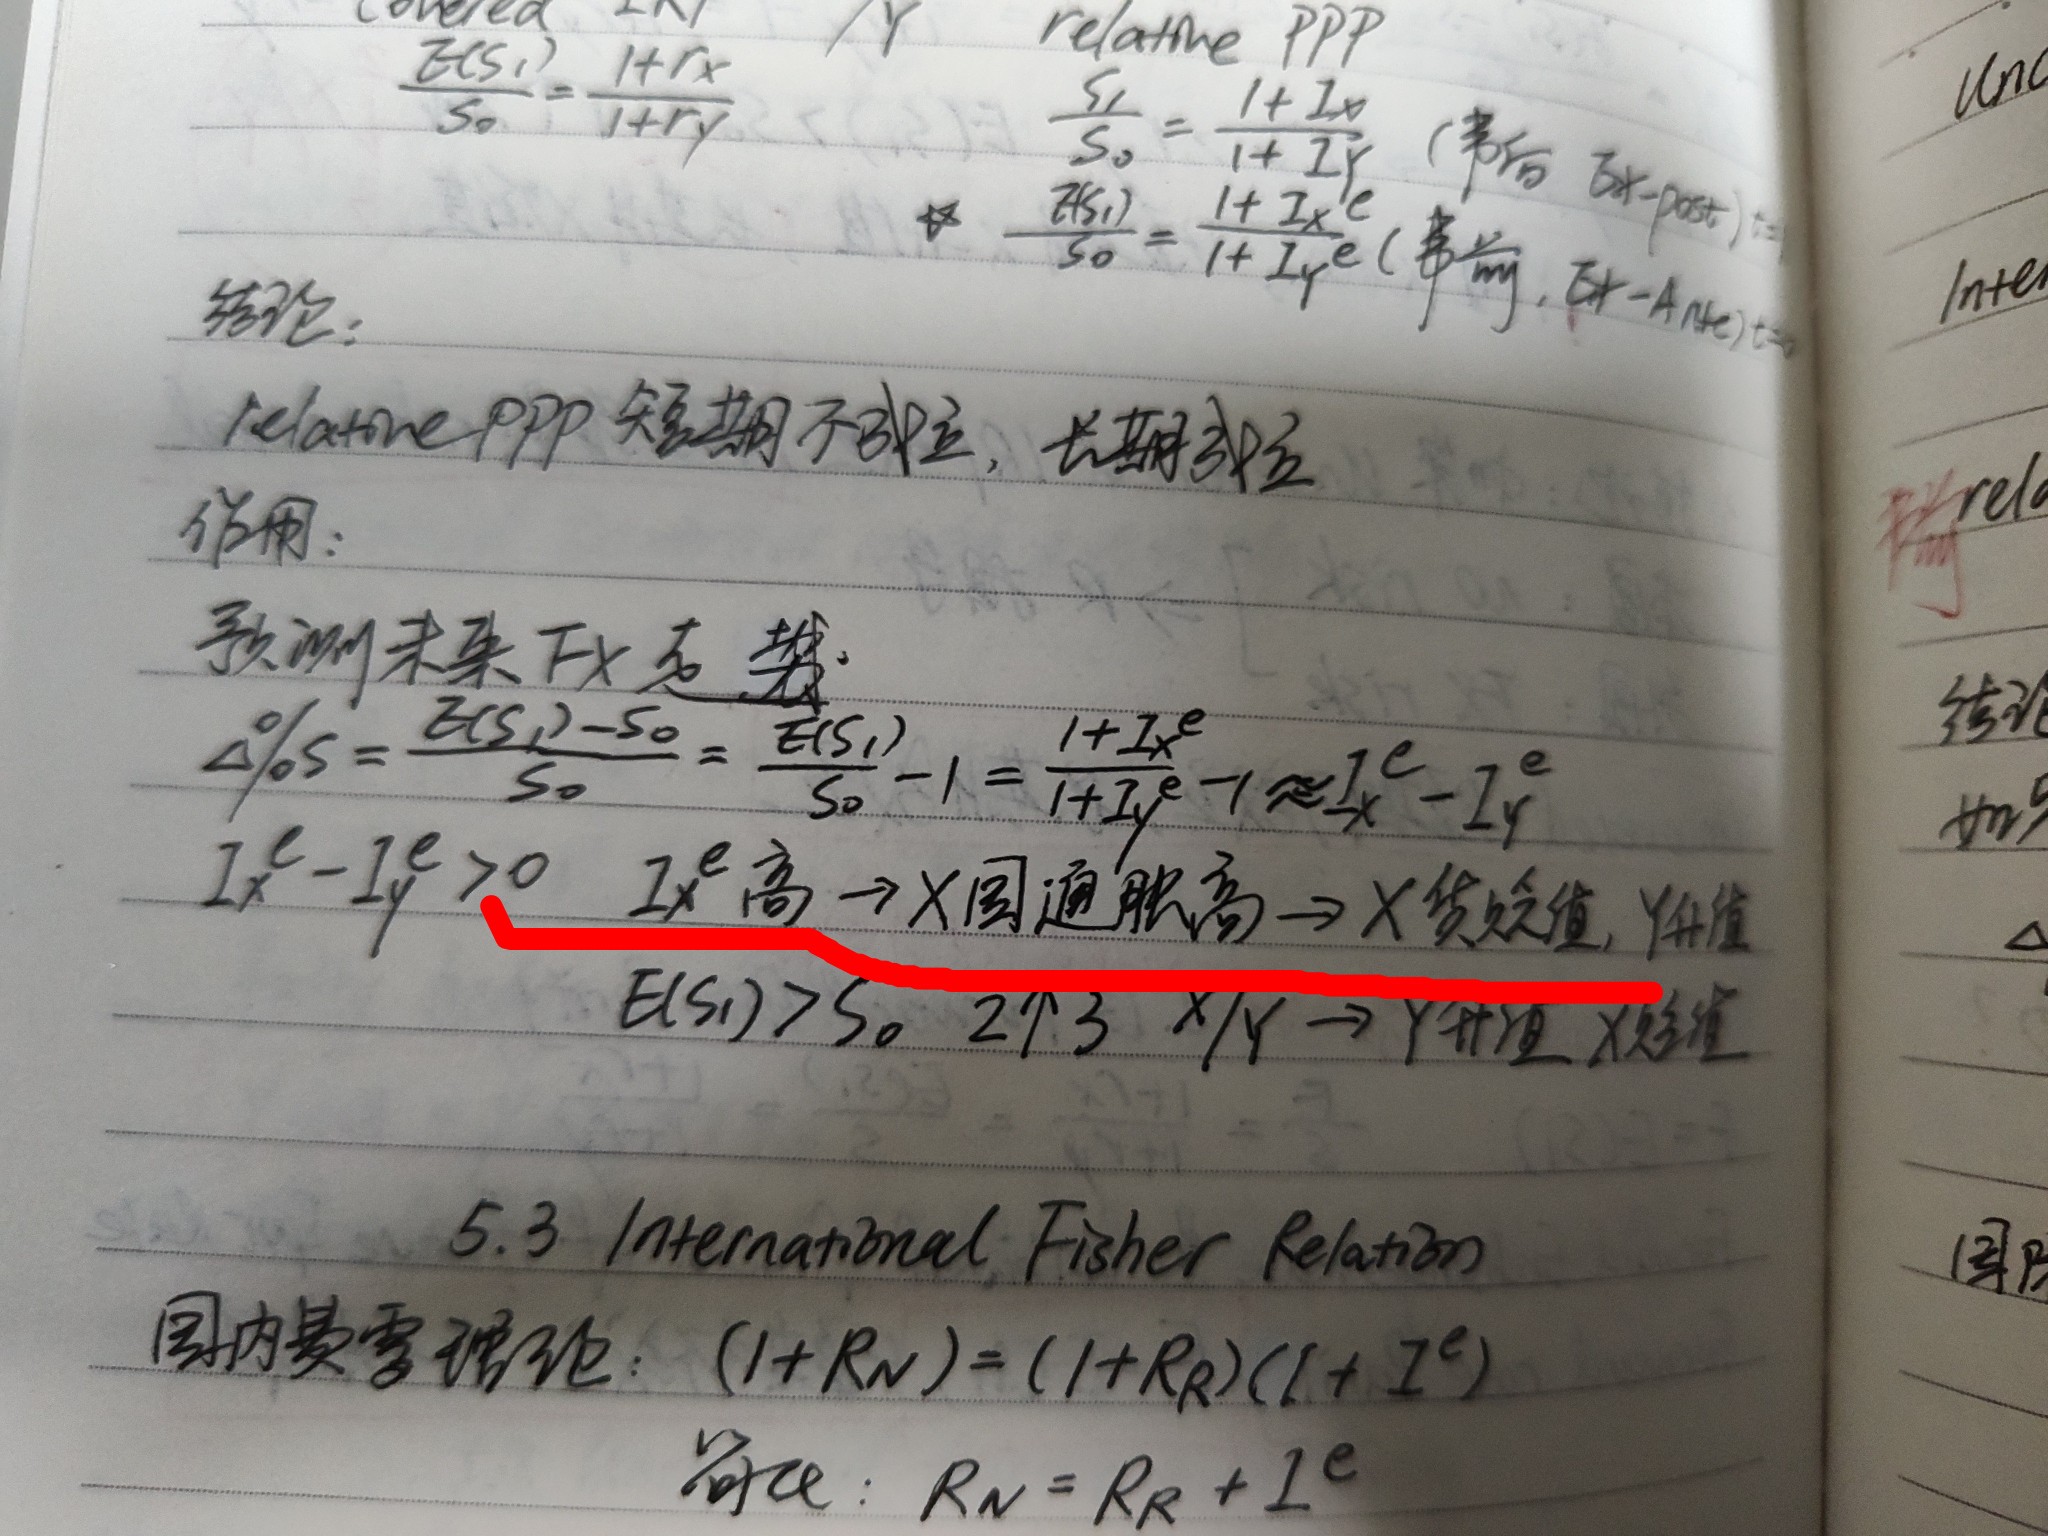 covered IRP X/Y relative PPP
E(S₁)/S₀ = 1+rx/1+ry
S₁/S₀ = 1+Ix/1+Iy (事后 Ex-post) t=1
☆ E(S₁)/S₀ = 1+Ixᵉ/1+Iyᵉ (事前, Ex-Ante) t=0
结论:
relative PPP 短期不成立, 长期成立
作用:
预测未来 FX 走势.
Δ%S = E(S₁)-S₀/S₀ = E(S₁)/S₀ - 1 = 1+Ixᵉ/1+Iyᵉ - 1 ≈ Ixᵉ - Iyᵉ
Ixᵉ - Iyᵉ > 0 Ixᵉ 高 → X国通胀高 → X货贬值, Y升值
E(S₁) > S₀ 2↑3 X/Y → Y升值 X贬值
5.3 International Fisher Relation
国内费雪理论: (1+RN) = (1+RR)(1+Iᵉ)
简化: RN = RR + Iᵉ
Inter
事前 rela
结论
如果
Δ
国际